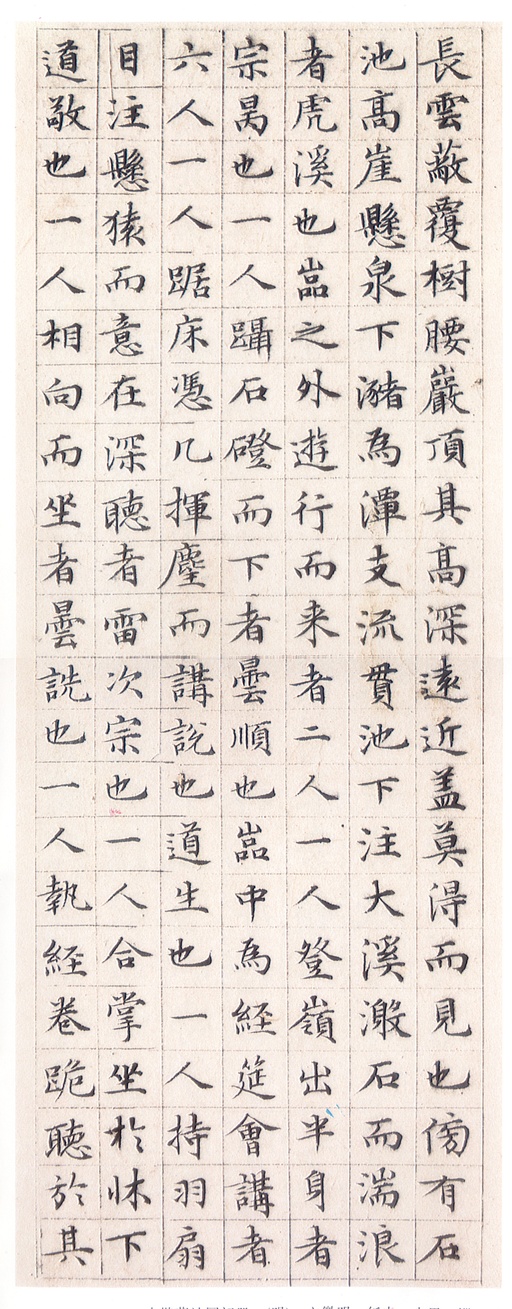 長雲蔽覆樹腰巖頂其高深遠近盖莫得而見也傍有石
池高崖懸泉下瀦為潭支流貫池下注大溪激石而湍浪
者虎溪也嵓之外遊行而来者二人一人登嶺出半身者
宗昺也一人躡石磴而下者曇順也嵓中為經筵會講者
六人一人踞床憑几揮麈而講說也道生也一人持羽扇
目注懸猿而意在深聽者雷次宗也一人合掌坐於床下
道敬也一人相向而坐者曇詵也一人執經卷跪聽於其